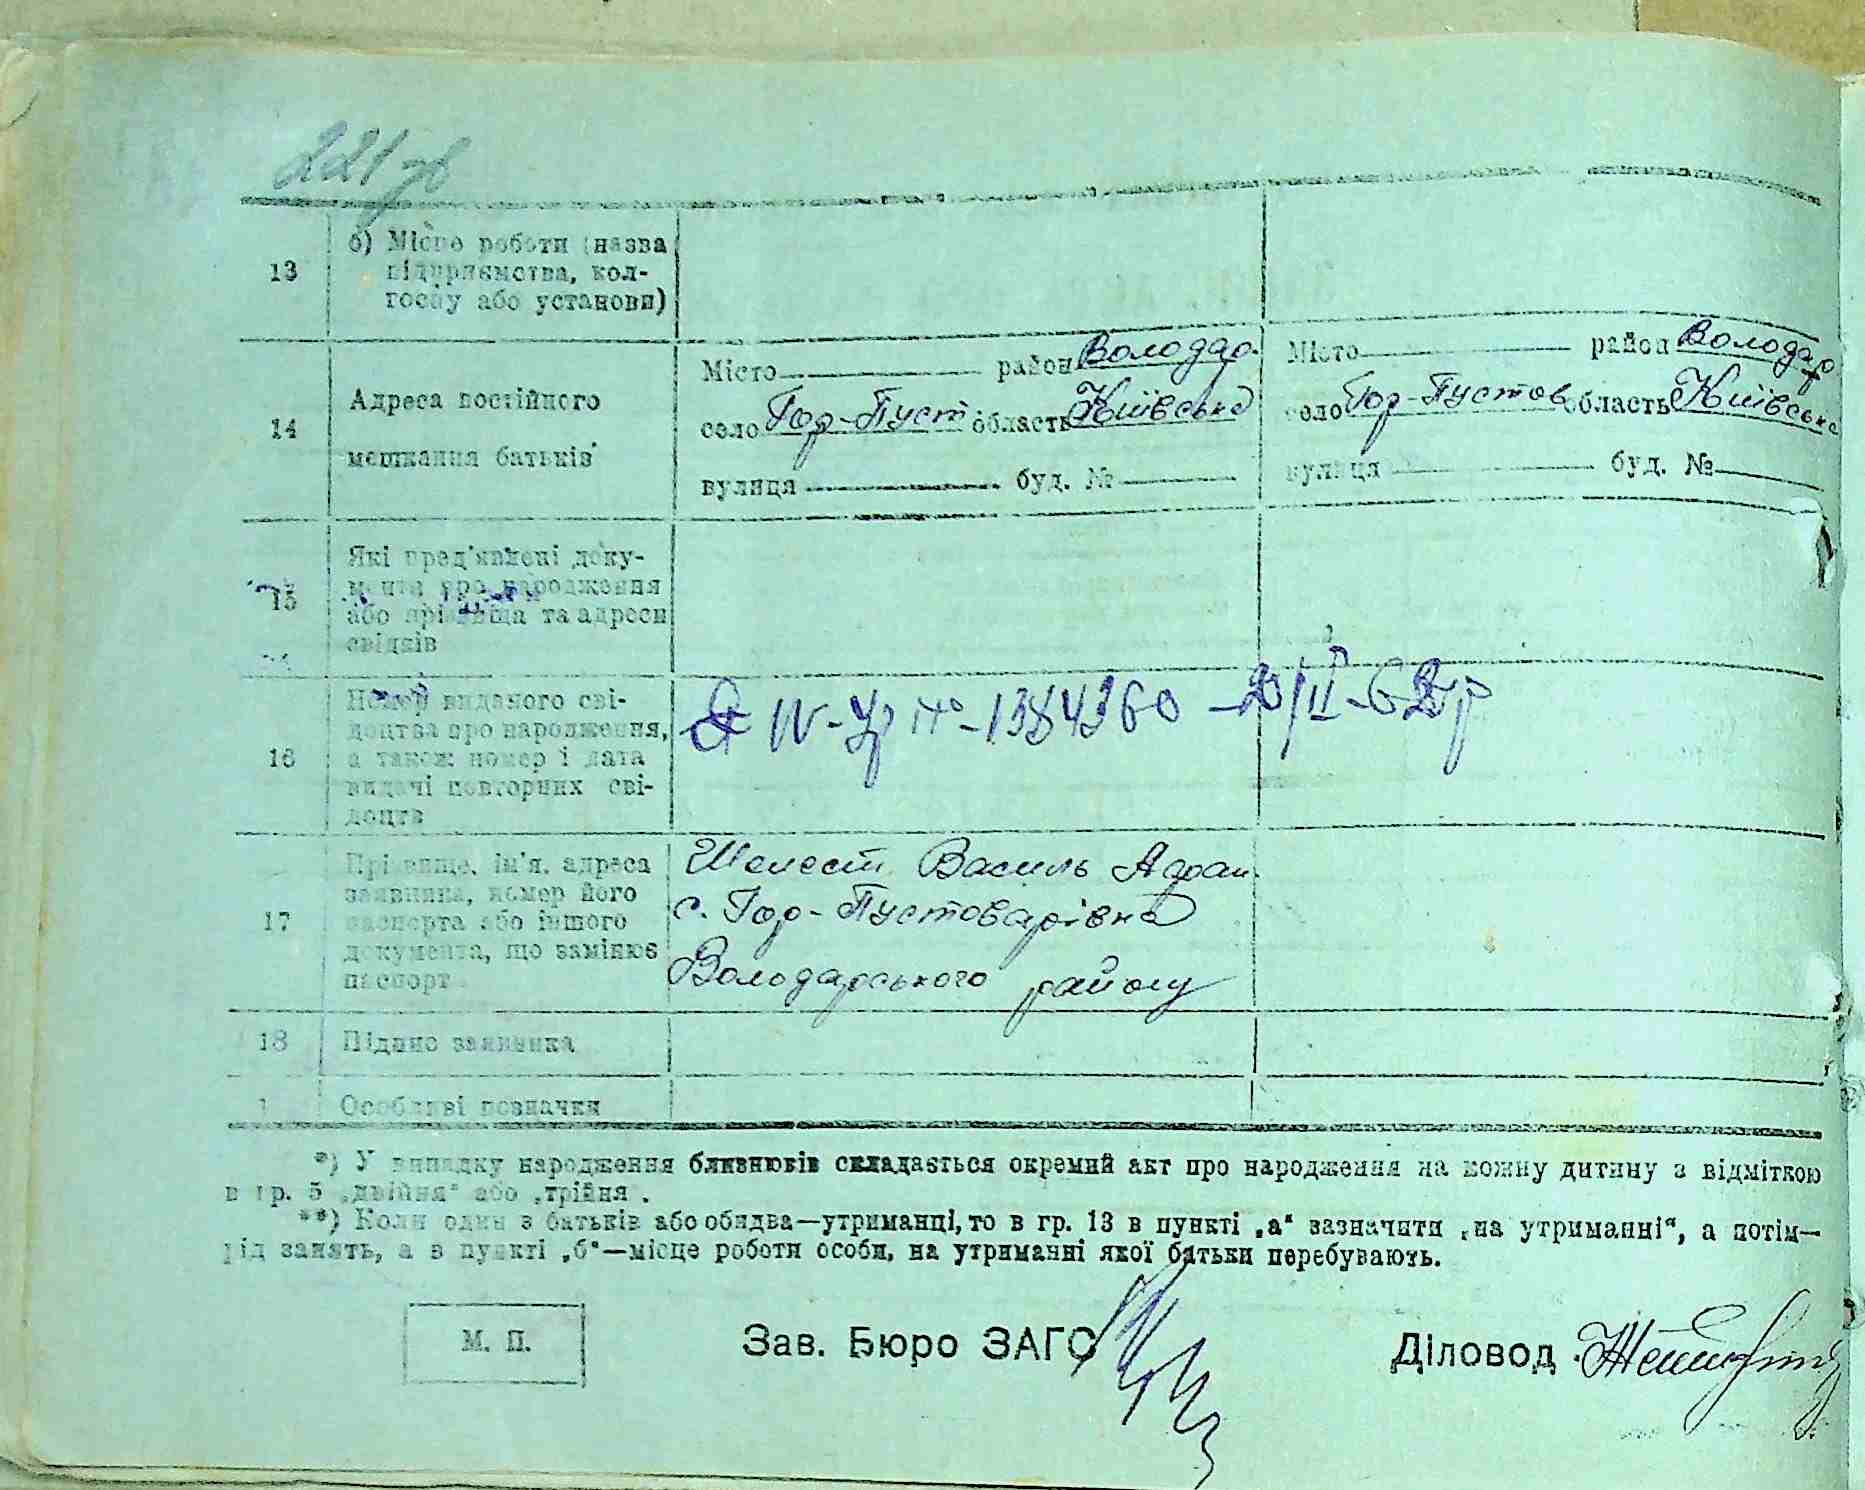 221зв
13
б) Місце роботи (назва
підприємства, кол-
госпу або установи)
14
Адреса постійного
мешкання батьків
Місто район Володар.
село Гор-Пуст область Київська
вулиця буд. №
Місто район Володар
село Гор-Пустов область Київська
вулиця буд. №
15
Які пред'явлені доку-
менти про народження
або прізвища та адреси
свідків
16
Номер виданого сві-
доцтва про народження,
а також номер і дата
видачі повторних сві-
доцтв
IV-УР № -1384360 -20/II-62р
17
Прізвище, ім'я, адреса
заявника, номер його
паспорта або іншого
документа, що замінює
паспорт
Шелест Василь Афан.
с. Гор-Пустоварівка
Володарського району
18
Підпис заявника
1
Особливі позначки
*) У випадку народження близнюків складається окремий акт про народження на кожну дитину з відміткою
в гр. 5 „двійня" або „трійня".
**) Коли один з батьків або обидва—утриманці, то в гр. 13 в пункті „а" зазначити „на утриманні", а потім—
рід занять, а в пункті „б"—місце роботи особи, на утриманні якої батьки перебувають.
М. П.
Зав. Бюро ЗАГС
Діловод